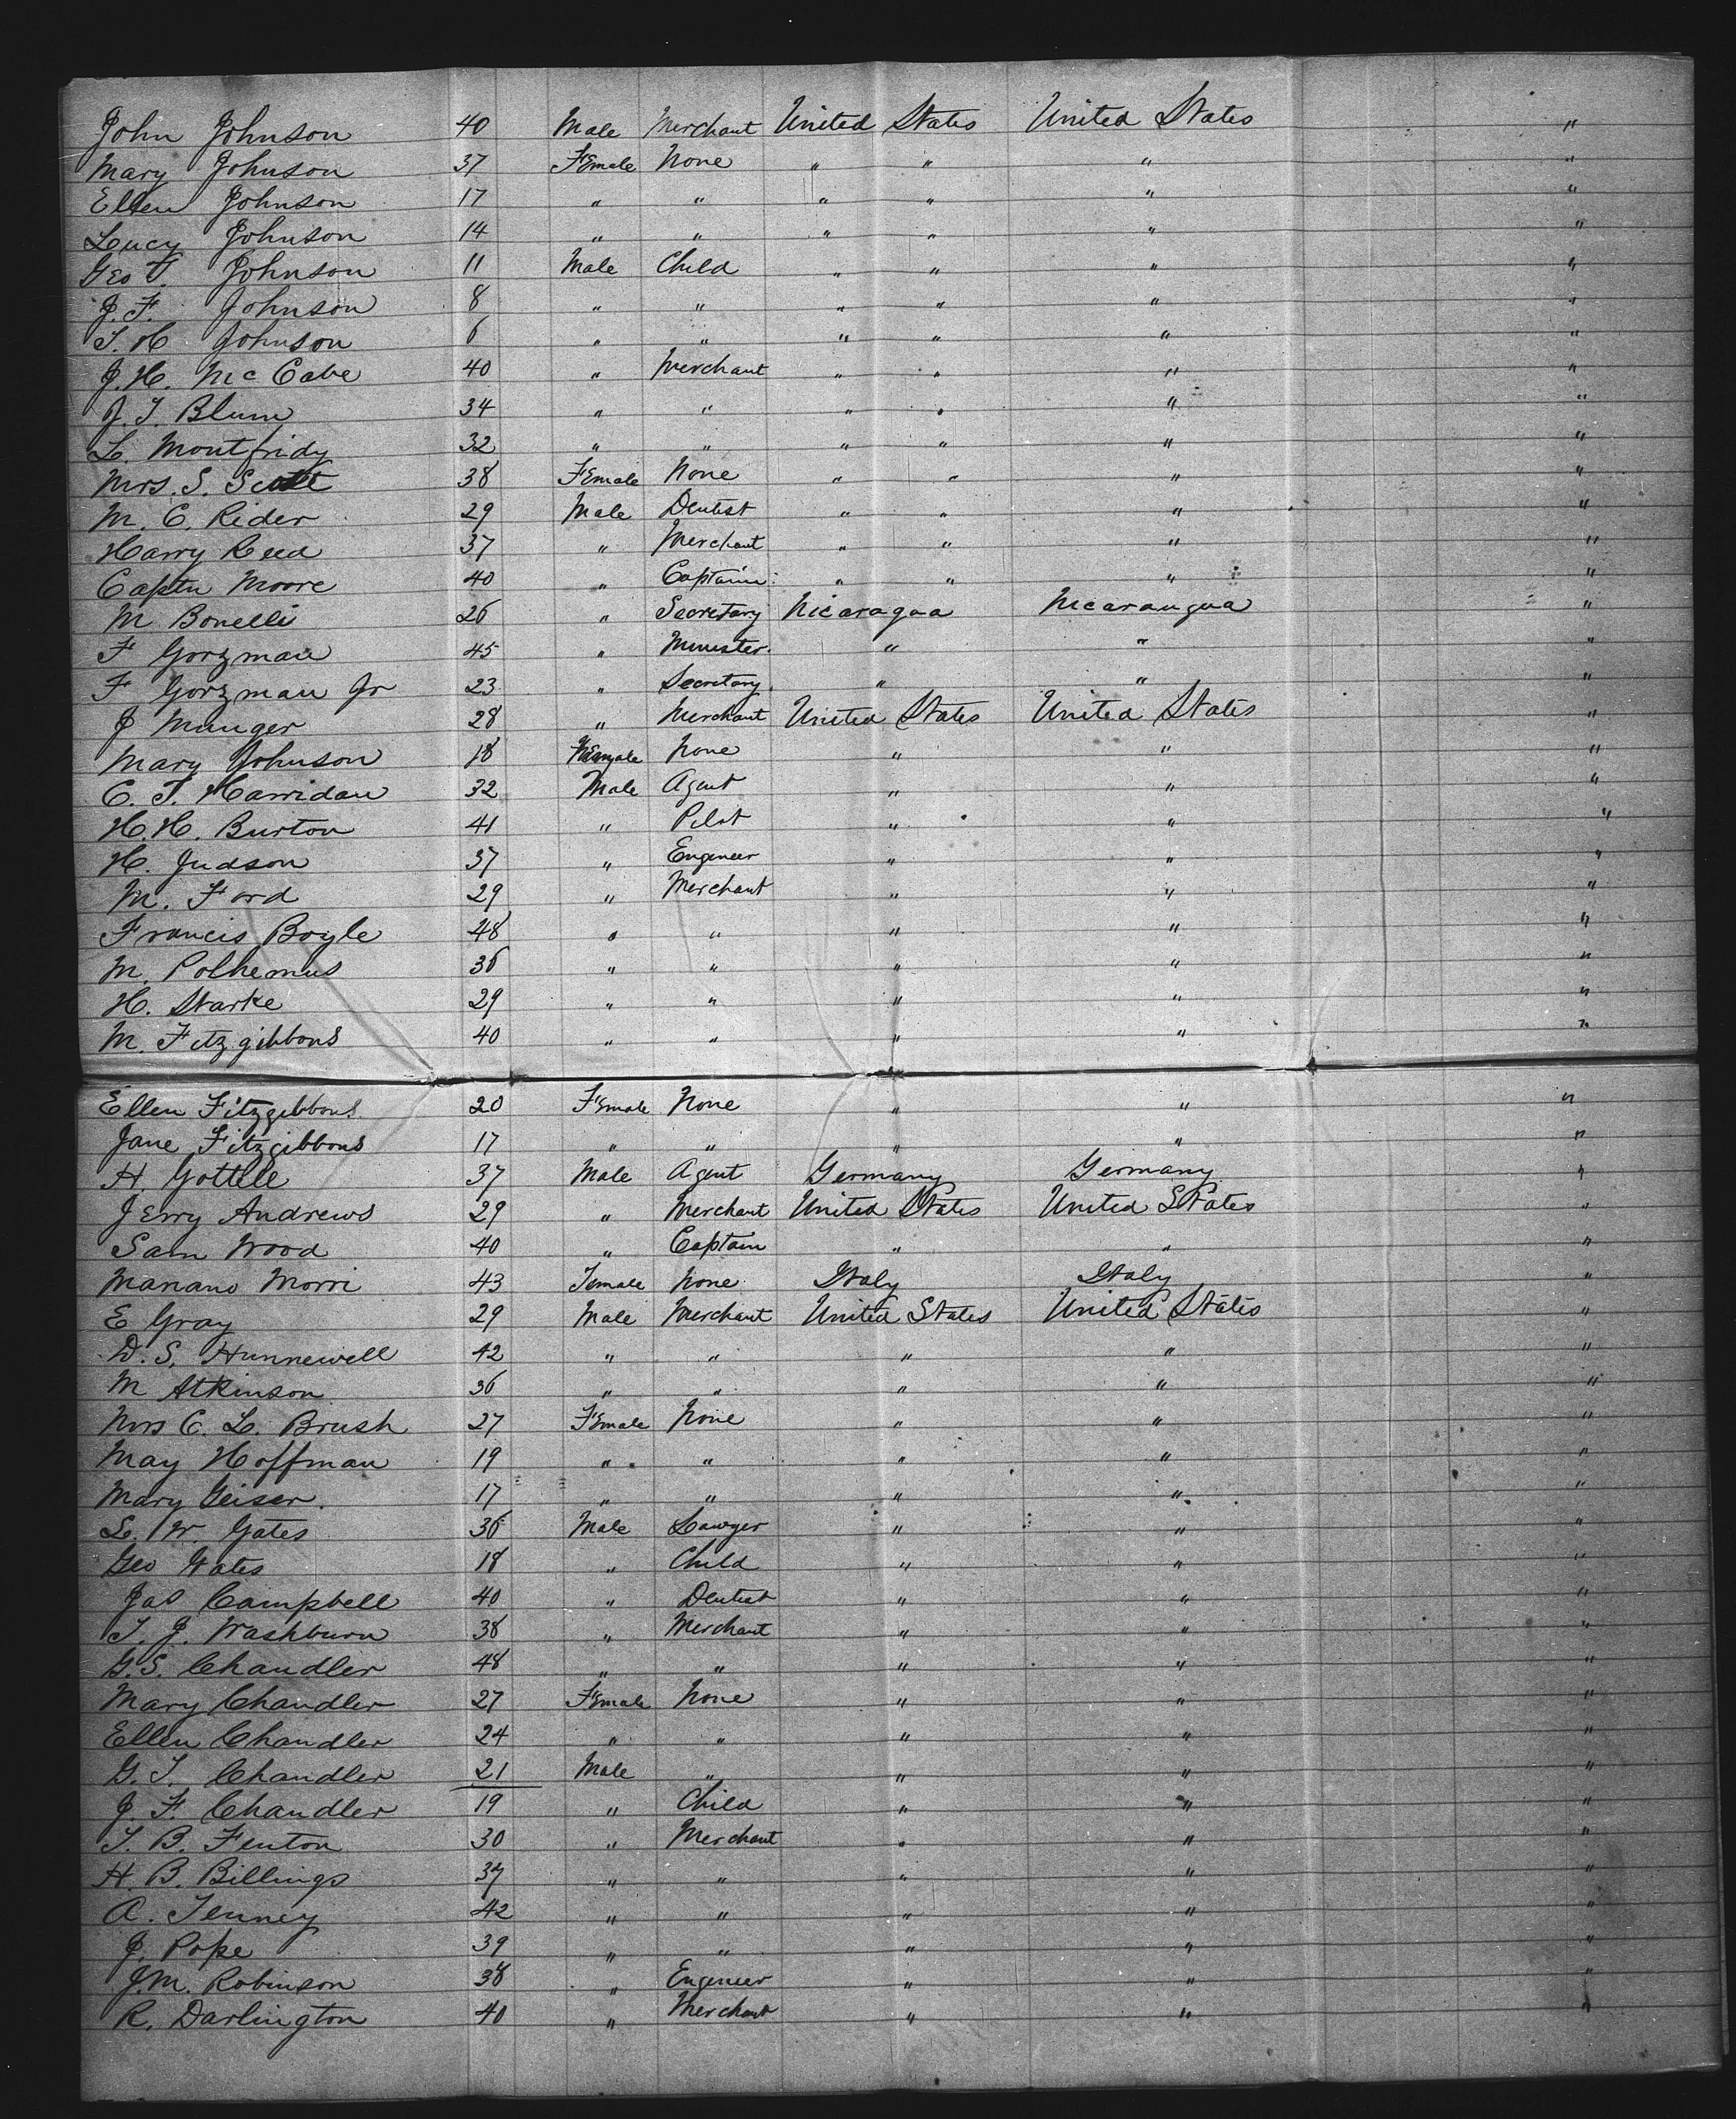 John Johnson 40 Male Merchant United States United States "
Mary Johnson 37 Female None " " " "
Ellen Johnson 17 " " " " " "
Lucy Johnson 14 " " " " " "
Geo T. Johnson 11 Male Child " " " "
J. F. Johnson 8 " " " " " "
T. H Johnson 6 " " " " " "
J. H. McCabe 40 " Merchant " " " "
J. T. Blum 34 " " " " " "
L. Montfridy 32 " " " " " "
Mrs. S. Scott 38 Female None " " " "
M. C. Rider 29 Male Dentist " " " "
Harry Reed 37 " Merchant " " " "
Captn Moore 40 " Captain " " " "
M Bonelli 26 " Secretary Nicaragua Nicaraugua "
F Gorzman 45 " Minister " " "
F Gorzman Jr 23 " Secretary " " "
J Munger 28 " Merchant United States United States "
Mary Johnson 18 Female None " " "
C. T. Harridan 32 Male Agent " " "
H. H. Burton 41 " Pilot " " "
H. Judson 37 " Engeneer " " "
M. Ford 29 " Merchant " " "
Francis Boyle 48 " " " " "
M. Polhemus 36 " " " " "
H. Starke 29 " " " " "
M. Fitzgibbons 40 " " " " "
Ellen Fitzgibbons 20 Female None " " "
Jane Fitzgibbons 17 " " " " "
H. Gottele 37 Male Agent Germany Germany "
Jerry Andrews 29 " Merchant United States United States "
Sam Wood 40 " Captain " " "
Mariano Morri 43 Female None Italy Italy "
E Gray 29 Male Merchant United States United States "
D. S. Hunnewell 42 " " " " "
M Atkinson 36 " " " " "
Mrs C. L. Brush 27 Female None " " "
May Hoffman 19 " " " " "
Mary Geiser. 17 " " " " "
L. W. Gates 36 Male Lawyer " " "
Geo Gates 18 " Child " " "
Jas Campbell 40 " Dentist " " "
T. J. Washburn 38 " Merchant " " "
G. S. Chandler 48 " " " " "
Mary Chandler 27 Female None " " "
Ellen Chandler 24 " " " " "
G. T. Chandler 21 Male " " " "
J. F. Chandler 19 " Child " " "
T. B. Fenton 30 " Merchant " " "
H. B. Billings 37 " " " " "
A. Tenney 42 " " " " "
J. Pope 39 " " " " "
J. M. Robinson 38 " Engeneer " " "
R. Darlington 40 " Merchant " " "